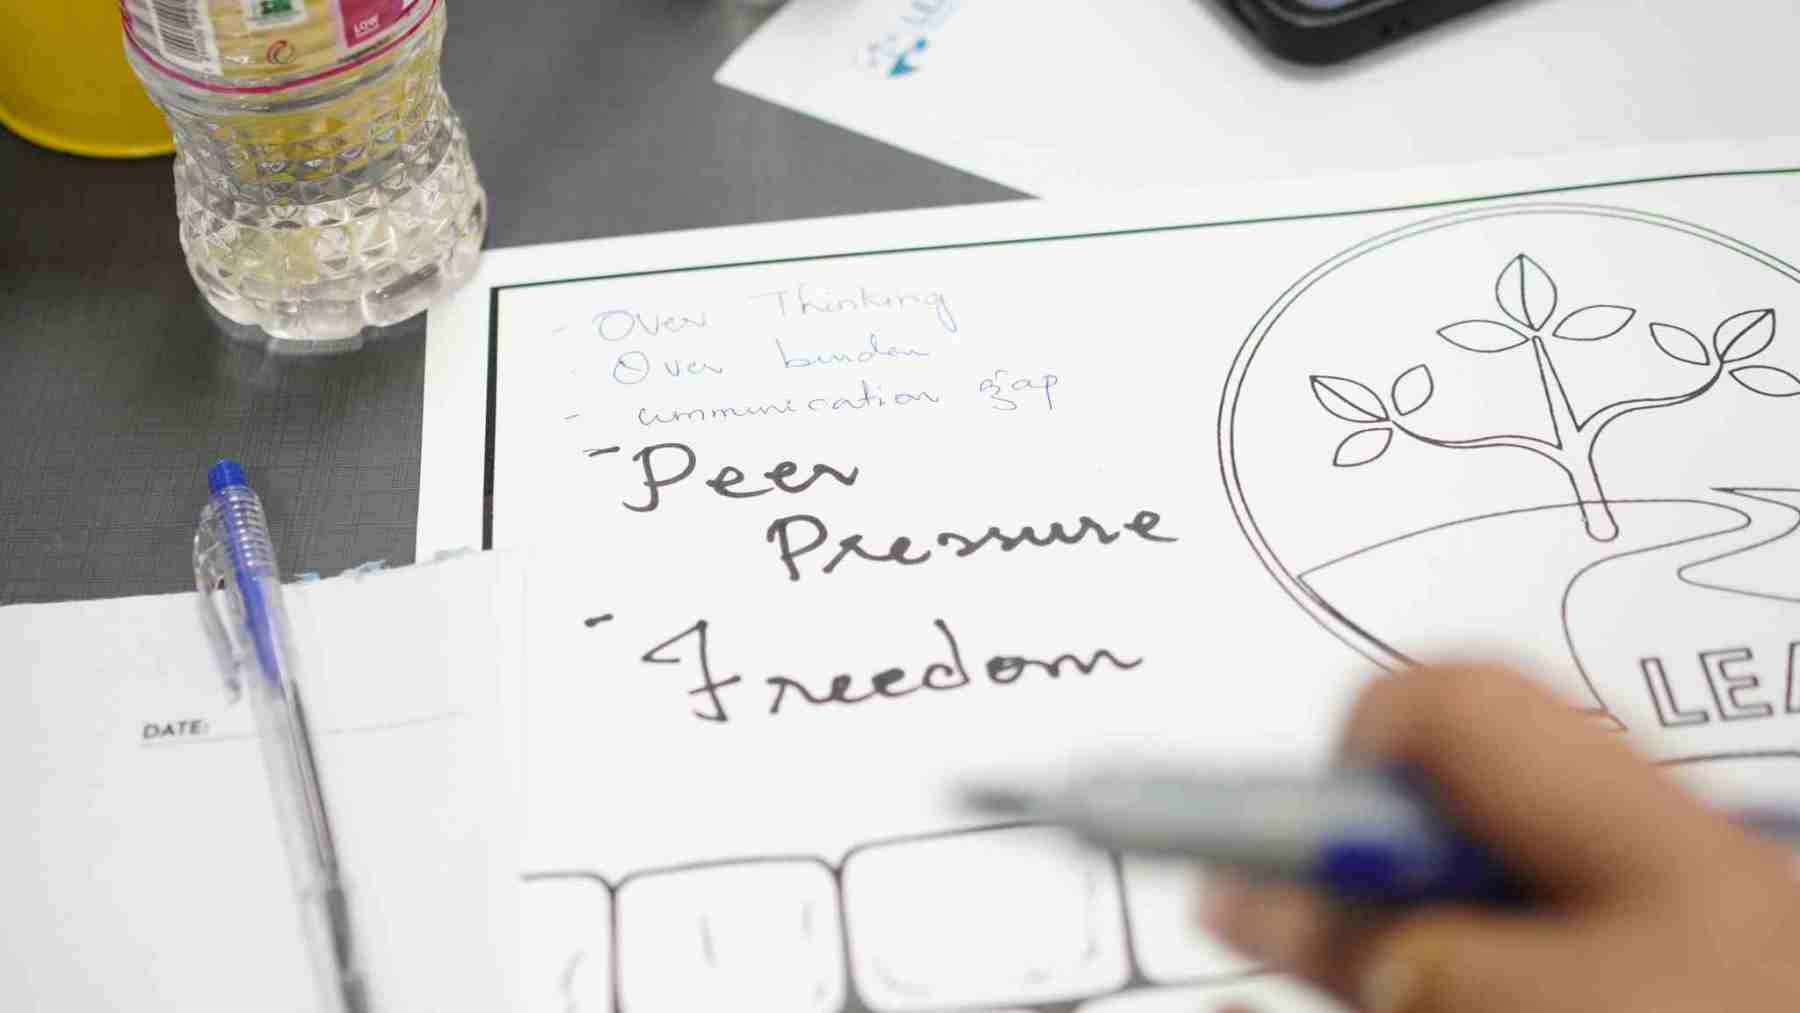 LOW
- Over Thinking
- Over burden
- communication gap
- Peer
Pressure
- Freedom
LEA
DATE: